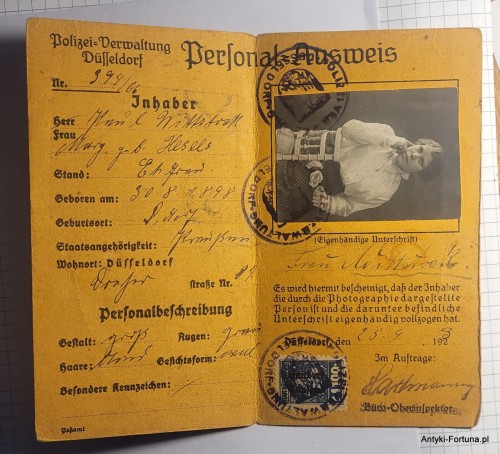 Polizei=Verwaltung
Düsseldorf
Nr. 398/66
Inhaber
Herr Paul Wittstock
Frau
Marg. geb. Hesels
Stand: Ehefrau
Geboren am: 30 8 1898
Geburtsort: D.dorf
Staatsangehörigkeit: Preußen
Wohnort: Düsseldorf
Dreher straße Nr. 84
Personalbeschreibung
Gestalt: groß Augen: grau
Haare: blond Gesichtsform: oval
Besondere Kennzeichen:
Paßamt
Personal=Ausweis
(Eigenhändige Unterschrift)
Frau
Es wird hiermit bescheinigt, daß der Inhaber
die durch die Photographie dargestellte
Person ist und die darunter befindliche
Unterschrift eigenhändig vollzogen hat.
Düsseldorf, den 25. 9. 1923
Im Auftrage:
Hartmann
Büro=Oberinspektor
Antyki-Fortuna.pl